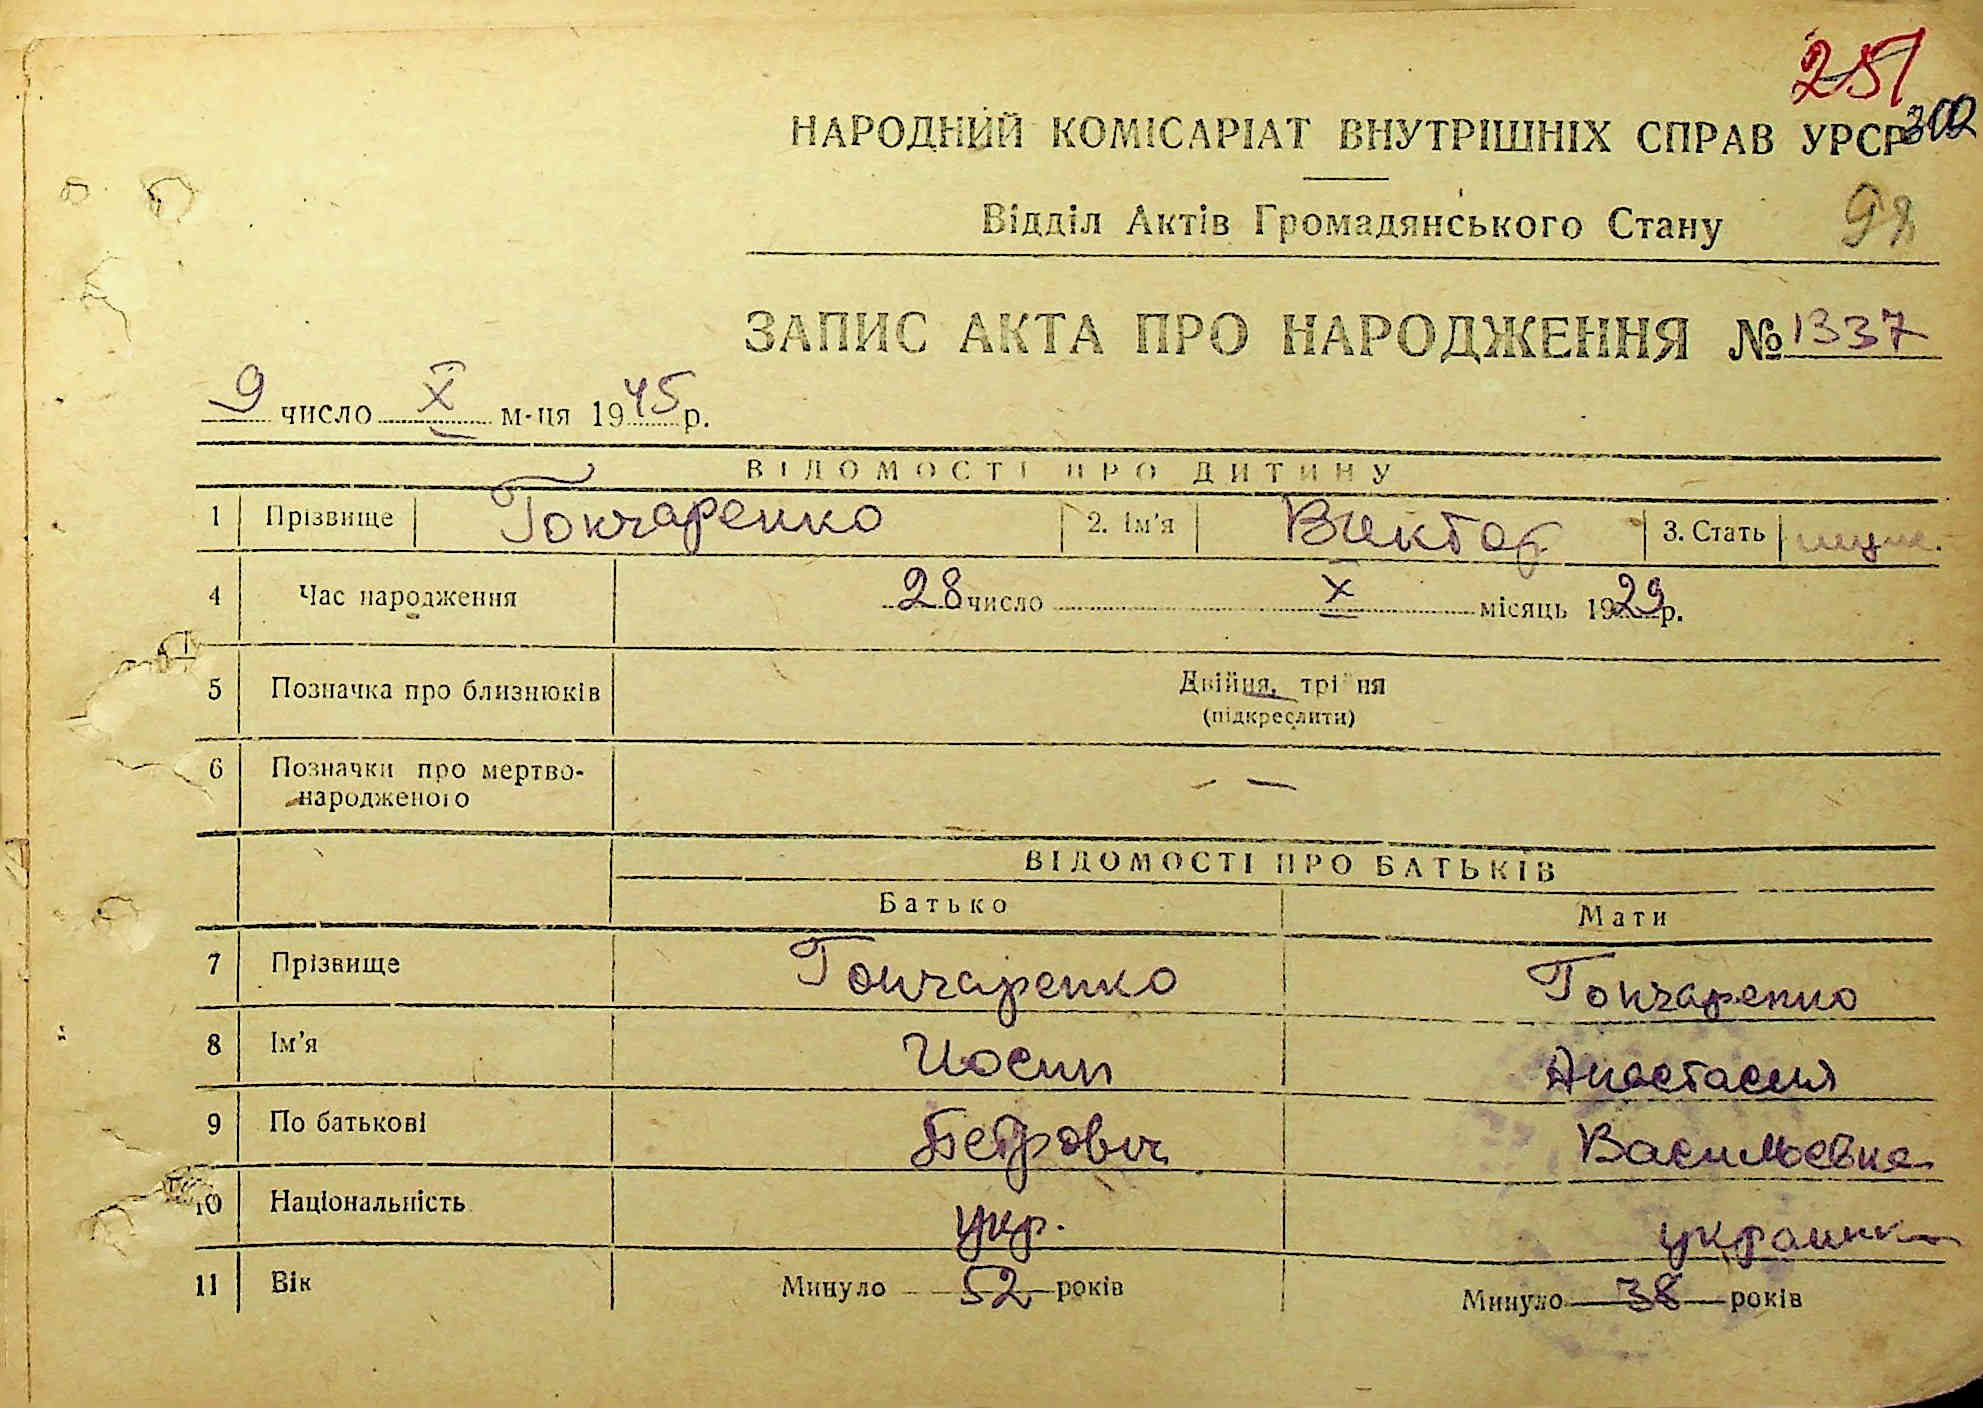 251
302
НАРОДНИЙ КОМІСАРІАТ ВНУТРІШНІХ СПРАВ УРСР
Відділ Актів Громадянського Стану
ЗАПИС АКТА ПРО НАРОДЖЕННЯ № 1337
9 число X м-ця 1945 р.
ВІДОМОСТІ ПРО ДИТИНУ
1 Прізвище Гончаренко 2. Ім'я Виктор 3. Стать муж.
4 Час народження 28 число X місяць 1929 р.
5 Позначка про близнюків Двійня, трійня
(підкреслити)
6 Позначки про мертво-
народженого — —
ВІДОМОСТІ ПРО БАТЬКІВ
Батько Мати
7 Прізвище Гончаренко Гончаренко
8 Ім'я Иосип Анастасия
9 По батькові Петрович Васильевна
10 Національність укр. украинка
11 Вік Минуло 52 років Минуло 38 років